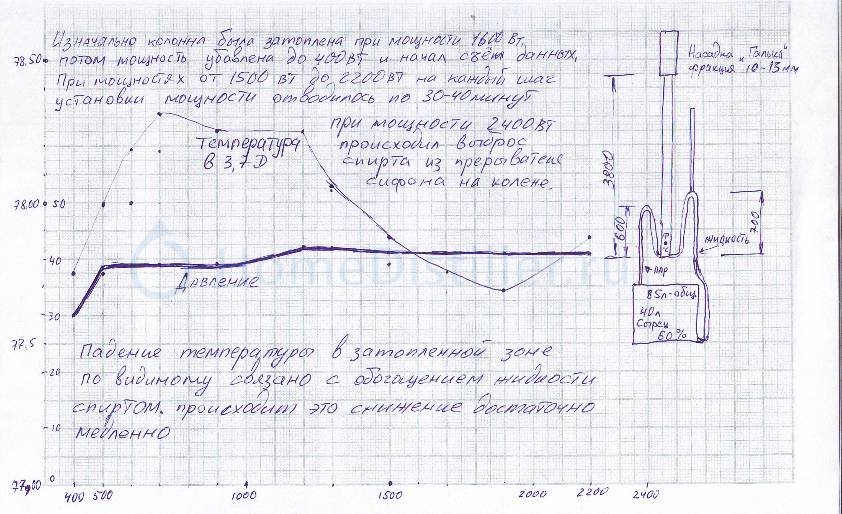 Изначально колонна была затоплена при мощности 1600 Вт,
потом мощность убавлена до 400Вт и начал съём данных.
При мощностях от 1500 Вт до 2200Вт на каждый шаг
установки мощности отводилось по 30-40 минут
при мощности 2400Вт
происходил выброс
спирта из прерывателя
сифона на колене.
Температура
в 3,7 D
Давление
HomeDistiller.ru
Падение температуры в затопленной зоне
по видимому связано с обогащением жидкости
спиртом. происходит это снижение достаточно
медленно
Насадка „Галька"
фракция 10-13мм
3800
600
700
жидкость
пар
85л-общ
40л
Сырец
60%
78.50
78.00
50
40
30
72.5
20
10
77,00
0
400 500 1000 1500 2000 2200 2400